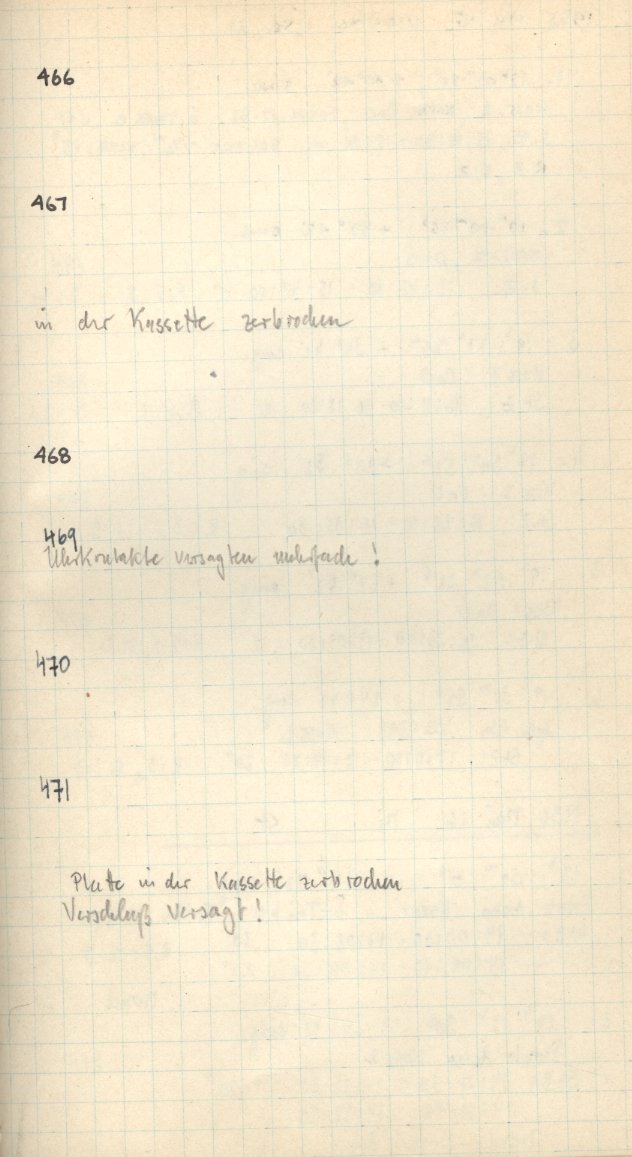 466
467
in der Kassette zerbrochen
468
469
Uhrkontakte versagten mehrfach !
470
471
Platte in der Kassette zerbrochen
Verschluß versagt !